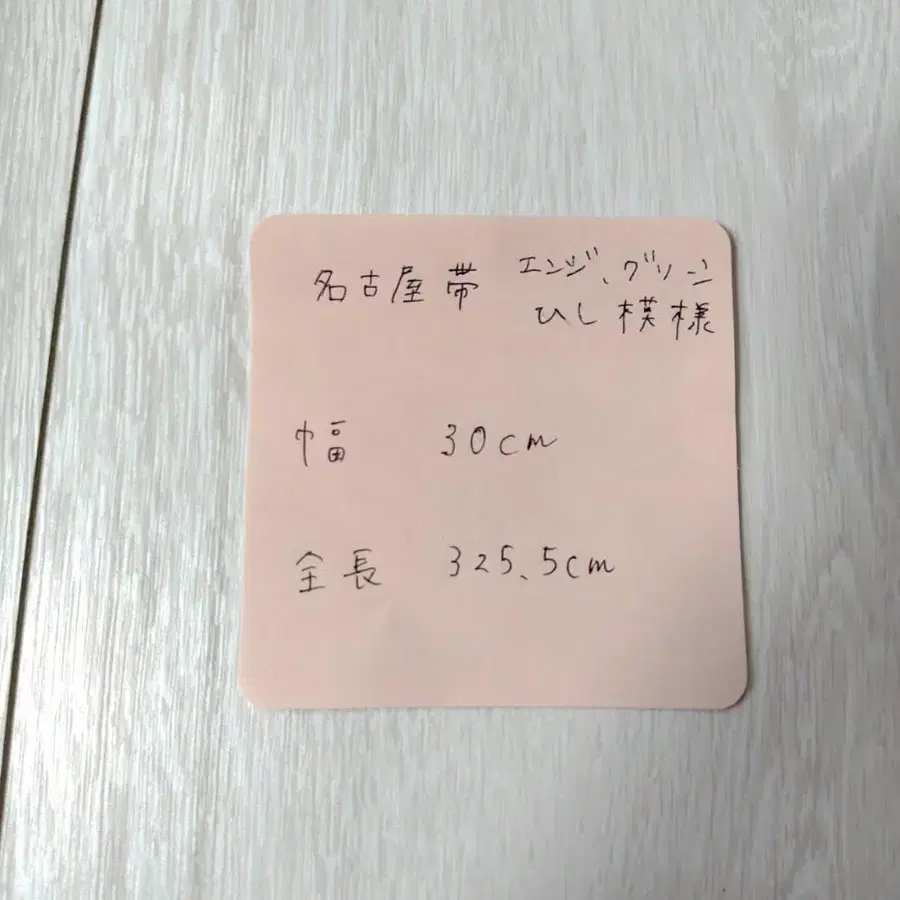 名古屋帯 エンジ、グリーン
ひし模様
幅 30cm
全長 325.5cm